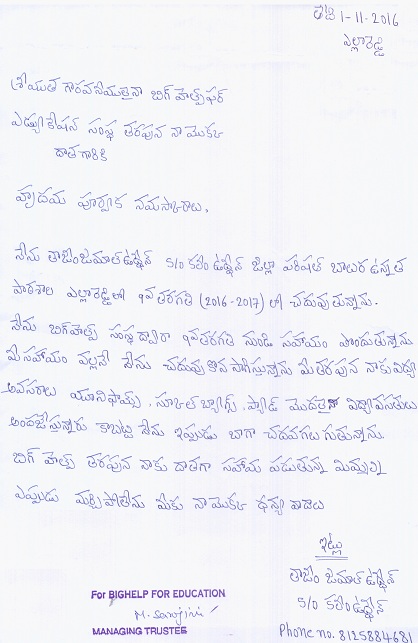 తేది 1-11-2016
ఎల్లారెడ్డి
శ్రీయుత గౌరవనీయులైన బిగ్ హెల్ప్ ఫర్
ఎడ్యుకేషన్ సంస్థ తరపున నా యొక్క
దాత గారికి
హృదయ పూర్వక నమస్కారాలు,
నేను S/O కలీం ఉద్దీన్ జిల్లా పరిషత్ బాలుర ఉన్నత
పాఠశాల ఎల్లారెడ్డిలో తరగతి (2016-2017) లో చదువుతున్నాను.
నేను బిగ్ హెల్ప్ సంస్థ ద్వారా తరగతి నుండి సహాయం పొందుతున్నాను
మీ సహాయం వల్లనే నేను చదువు కొన సాగిస్తున్నాను మీ తరపున నాకు విద్యా
అవసరాలు యూనిఫామ్స్, స్కూల్ బ్యాగ్స్, ప్యాడ్ మొదలైన విద్యా వసతులు
అందజేస్తున్నారు కాబట్టి నేను ఇప్పుడు బాగా చదవగలుగుతున్నాను.
బిగ్ హెల్ప్ తరపున నాకు దాతగా సహాయ పడుతున్న మిమ్మల్ని
ఎప్పుడు మర్చిపోలేను మీకు నా యొక్క ధన్యవాదాలు
ఇట్లు
S/O కలీం ఉద్దీన్
Phone no. 8125884681
For BIGHELP FOR EDUCATION
M. Sarojini
MANAGING TRUSTEE